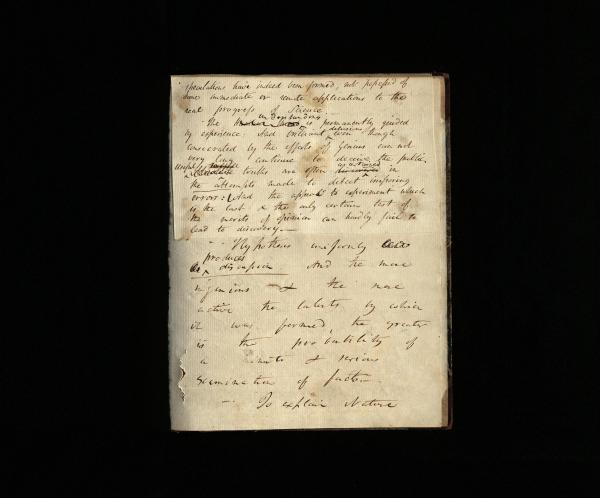 speculations have indeed been formed, not possessed of
some immediate or remote applications to the
real progress of Science.
understanding
The is permanently guided
by experience. And brilliant delusions even though
consecrated by the efforts of Genius can not
very long continue to deceive the public.
Useful truths are often in
the attempts made to detect imposing
errors: And the appeal to experiment which
is the last & the only certain test of
the merits of opinion can hardly fail to
lead to discovery.—
Hypothesis uniformly
produces
discussion And the more
ingenious & the more
active the talents by which
it was formed, the greater
is the probability of
a minute & serious
examination of facts—
— To explain Nature